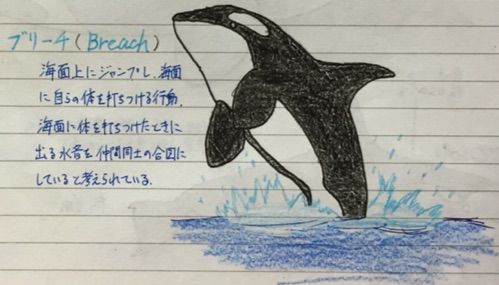 ブリーチ(Breach)
海面上にジャンプし、海面
に自らの体を打ちつける行動.
海面に体を打ちつけたときに
出る水音を仲間同士の合図に
していると考えられている.